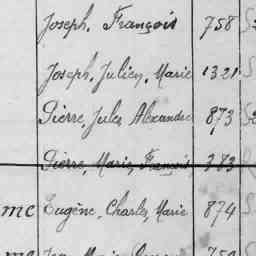 Joseph, François 758
Joseph, Julien, Marie 1321
Pierre, Jules Alexandre 873
Pierre, Marie, François 383
me Eugène, Charles, Marie 874